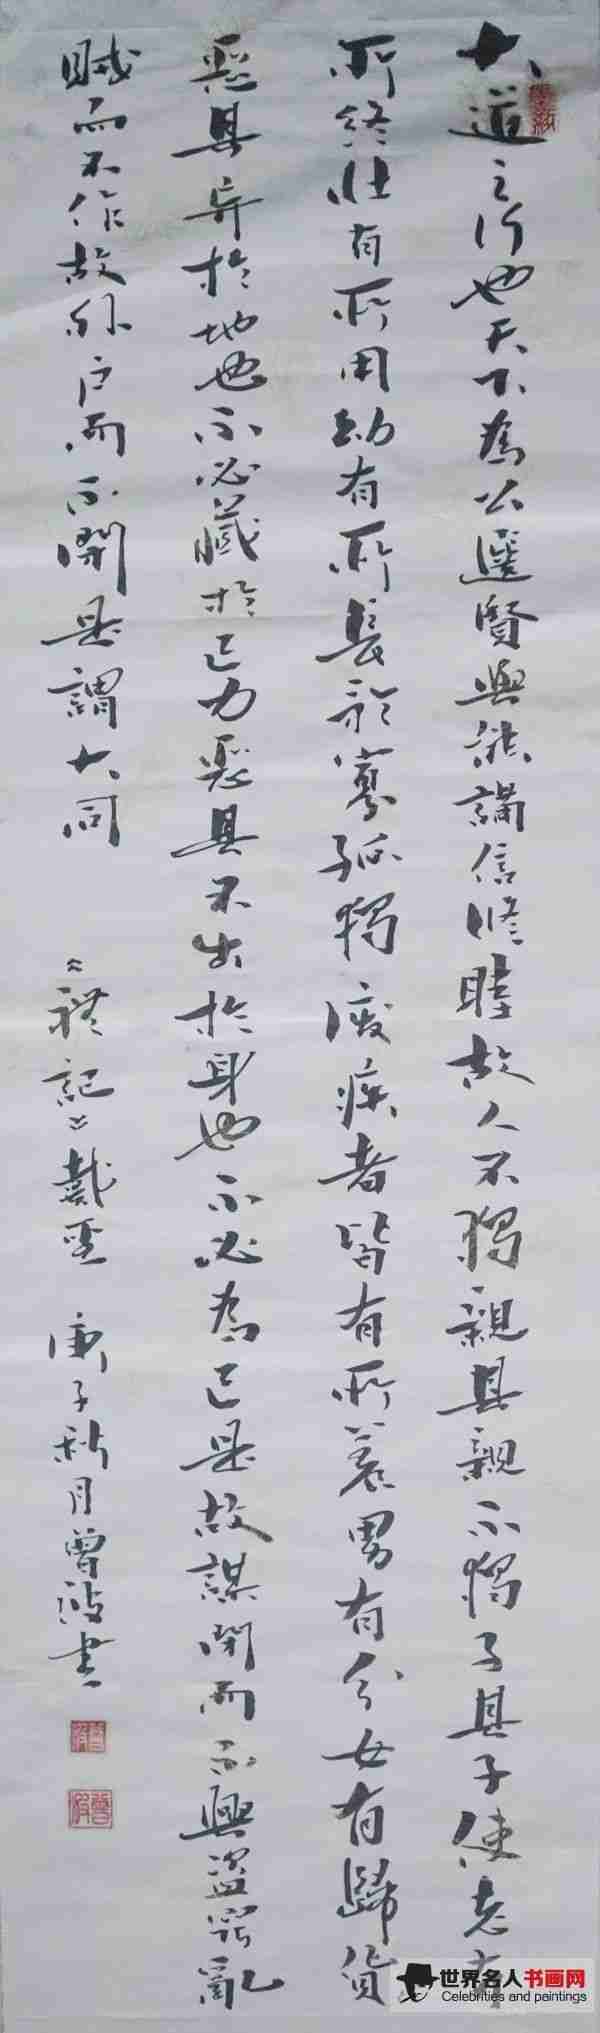 大道之行也天下為公選賢與能講信修睦故人不獨親其親不獨子其子使老有
所終壯有所用幼有所長矜寡孤獨廢疾者皆有所養男有分女有歸貨
惡其弃於地也不必藏於己力惡其不出於身也不必為己是故謀閉而不興盜竊亂
賊而不作故外户而不閉是謂大同
《禮記》戴聖 庚子秋月曾波書
世界名人书画网
Celebrities and paintings